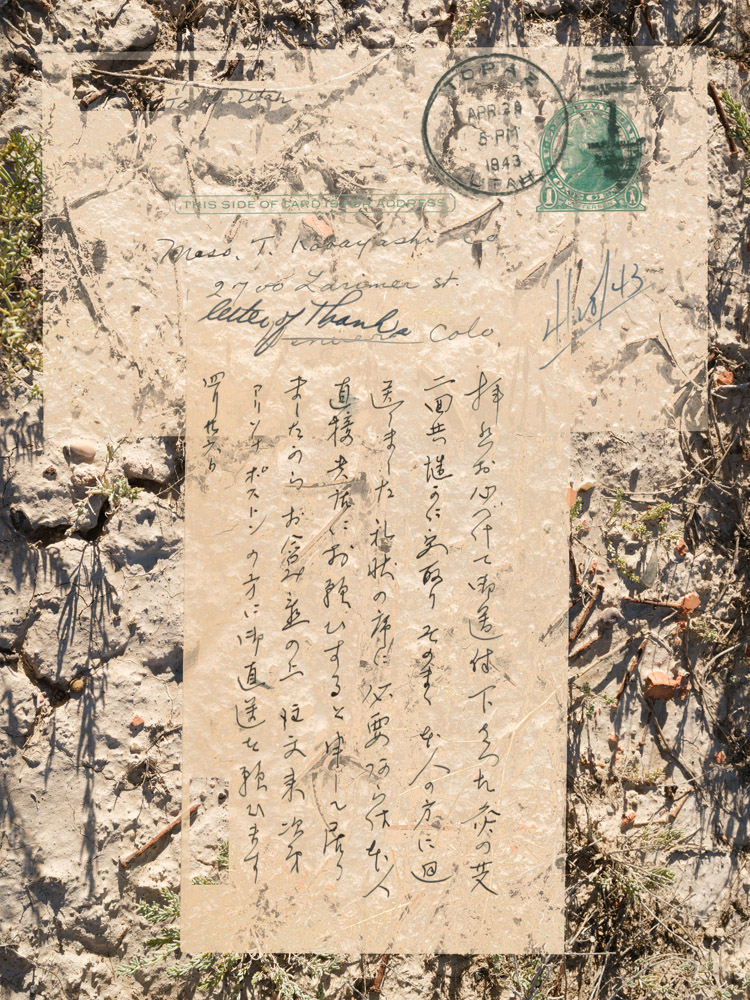 TOPAZ
APR 28
5 PM
1943
UTAH
THIS SIDE OF CARD IS FOR ADDRESS
Mess. T. Kobayashi Co
2700 Larimer st.
letter of Thanks
Colo.
4/28/43
拝啓お心づけて御送付下さつた灸の艾
二回共慥かに受取りそのまゝ本人の方に回
送しました礼状の序に必要阿らば本人
直接貴店にお願ひすると申して居り
ましたからお含み置の上注文来次第
アリゾナ ポストンの方に御直送を願ひます
四月廿六日